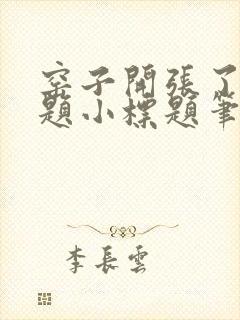 窑子開張了
題小標題筆
李長雲